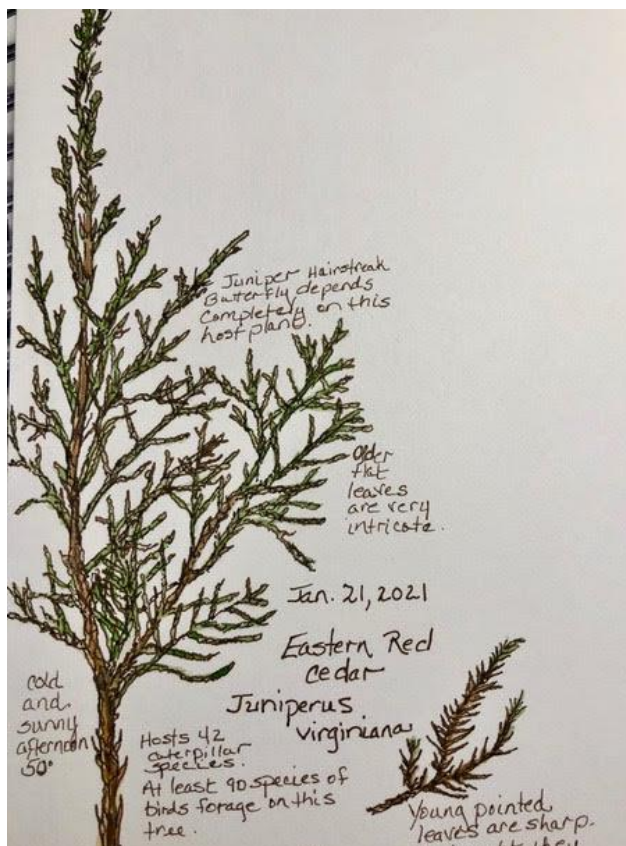 Juniper Hairstreak
Butterfly depends
completely on this
host plant.
Older
flat
leaves
are very
intricate.
Jan. 21, 2021
Eastern Red
cedar
Juniperus
virginiana
cold
and
sunny
afternoon
50°
Hosts 42
caterpillar
species.
At least 90 species of
birds forage on this
tree.
Young pointed
leaves are sharp.
they